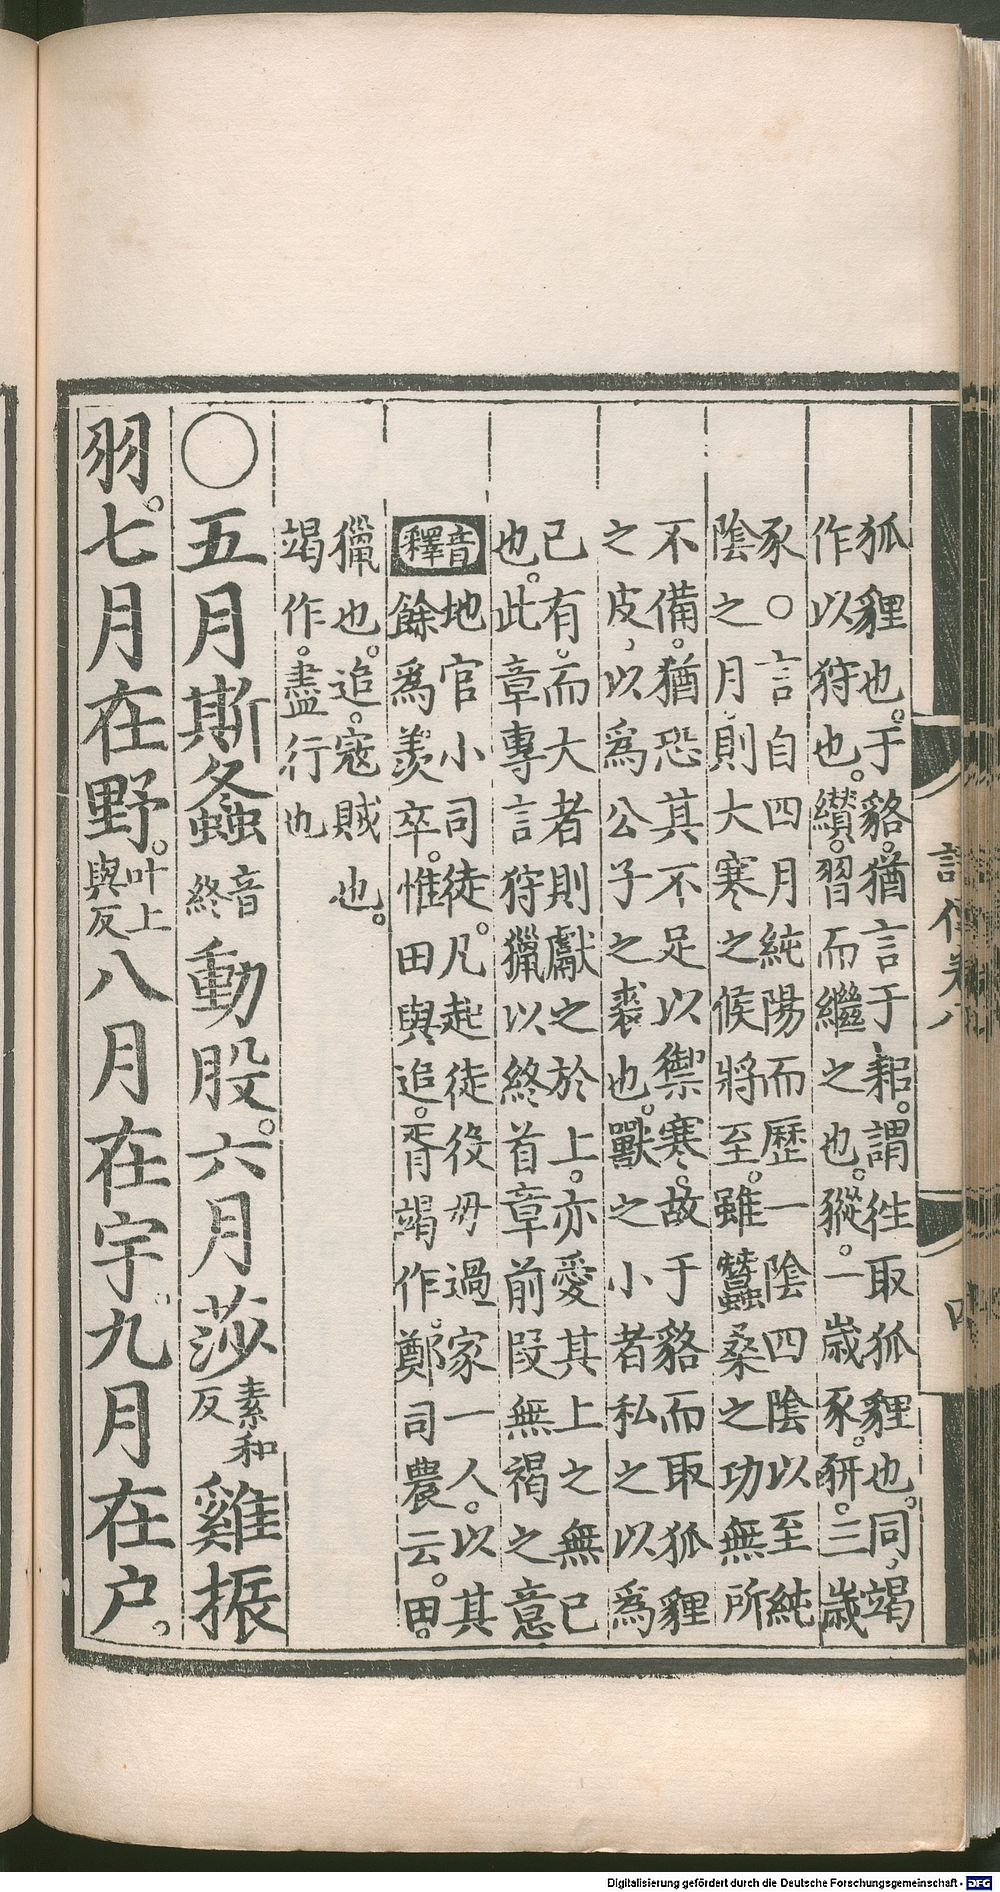 狐貍也。于貉。猶言于耜。謂徃取狐貍也。同、竭
作以狩也。纘。習而繼之也。豵。一歳豕。豜。三歳
豕〇言自四月純陽而歷一陰四陰以至純
陰之月、則大寒之候將至。雖蠶桑之功無所
不備。猶恐其不足以禦寒。故于貉而取狐貍
之皮、以爲公子之裘也。獸之小者私之以爲
己有。而大者則獻之於上。亦愛其上之無已
也。此章專言狩獵以終首章前段無褐之意
音釋 地官小司徒。凡起徒役毋過家一人。以其
餘爲羨卒。惟田與追。胥竭作。鄭司農云。田。
獵也。追。寇賊也。
竭作。盡行也
〇五月斯螽音終動股。六月莎素和反雞振
羽。七月在野。叶上與反八月在宇九月在户。
詩傳卷八
四
Digitalisierung gefördert durch die Deutsche Forschungsgemeinschaft - DFG